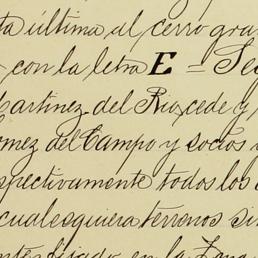 ta última al cerro gra
con la letra E = Se
Martinez del Rio, cede y
omez del Campo y socios
spectivamente todos los
cualesquiera terrenos si
fijado en la Zona